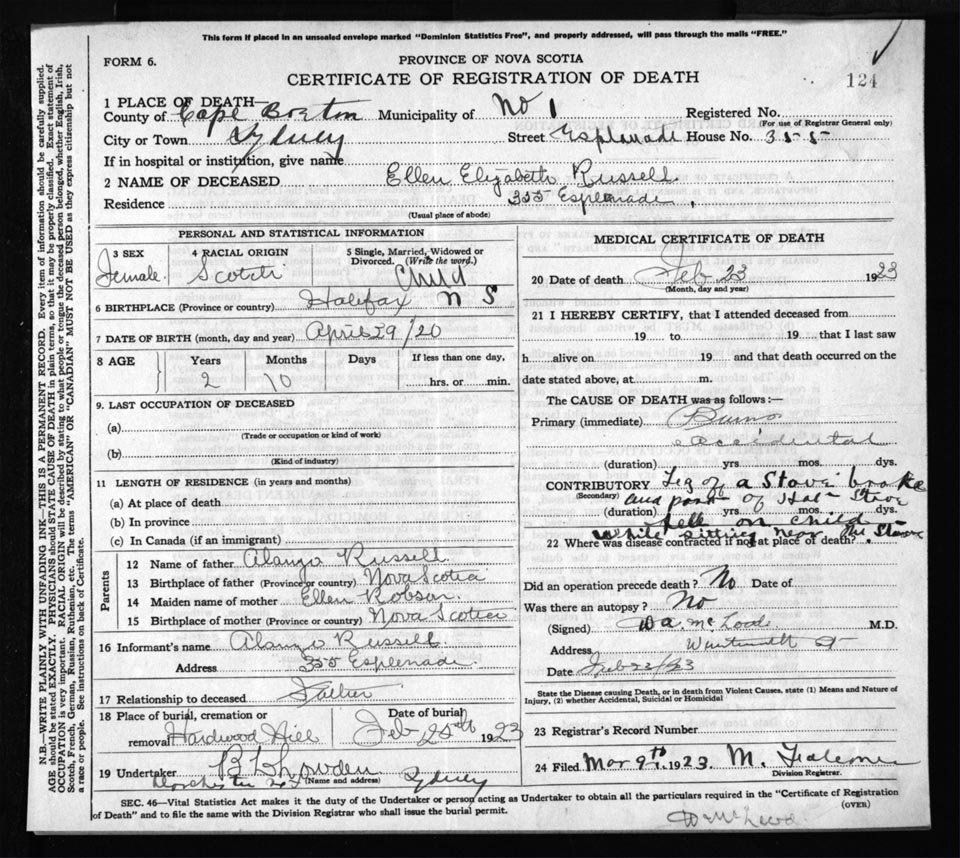 This form if placed in an unsealed envelope marked "Dominion Statistics Free", and properly addressed, will pass through the mails "FREE."
FORM 6.
PROVINCE OF NOVA SCOTIA
CERTIFICATE OF REGISTRATION OF DEATH
124
1 PLACE OF DEATH
County of Cape Breton Municipality of No 1 Registered No.
(For use of Registrar General only)
City or Town Sydney Street Esplanade House No. 355
If in hospital or institution, give name
2 NAME OF DECEASED Ellen Elizabeth Russell
Residence 355 Esplenade
(Usual place of abode)
PERSONAL AND STATISTICAL INFORMATION
3 SEX Female
4 RACIAL ORIGIN Scotch
5 Single, Married, Widowed or Divorced. (Write the word.) Child
6 BIRTHPLACE (Province or country) Halifax N S
7 DATE OF BIRTH (month, day and year) April 29/20
8 AGE Years Months Days If less than one day,
2 10 hrs. or min.
9. LAST OCCUPATION OF DECEASED
(a)
(Trade or occupation or kind of work)
(b)
(Kind of industry)
11 LENGTH OF RESIDENCE (in years and months)
(a) At place of death
(b) In province
(c) In Canada (if an immigrant)
Parents
12 Name of father Alanzo Russell
13 Birthplace of father (Province or country) Nova Scotia
14 Maiden name of mother Ellen Robson
15 Birthplace of mother (Province or country) Nova Scotia
16 Informant's name Alanzo Russell
Address 355 Esplenade
17 Relationship to deceased Father
18 Place of burial, cremation or removal Hardwood Hill
Date of burial Feb 25th 1923
19 Undertaker
(Name and address) Sydney
MEDICAL CERTIFICATE OF DEATH
20 Date of death Feb 23 1923
(Month, day and year)
21 I HEREBY CERTIFY, that I attended deceased from
19 to 19 that I last saw
h alive on 19 and that death occurred on the
date stated above, at m.
The CAUSE OF DEATH was as follows:—
Primary (immediate) Burns
accidental
(duration) yrs. mos. dys.
CONTRIBUTORY Leg of a Stove broke
(Secondary) and part of Hot Stove
(duration) yrs. mos. dys.
fell on child
while sitting near the Stove
22 Where was disease contracted if not at place of death?
Did an operation precede death? No Date of
Was there an autopsy? No
(Signed) M.D.
Address Wentworth St
Date Feb 23/23
State the Disease causing Death, or in death from Violent Causes, state (1) Means and Nature of Injury, (2) whether Accidental, Suicidal or Homicidal
23 Registrar's Record Number
24 Filed Mar 9th 1923 M.
Division Registrar.
SEC. 46—Vital Statistics Act makes it the duty of the Undertaker or person acting as Undertaker to obtain all the particulars required in the "Certificate of Registration
of Death" and to file the same with the Division Registrar who shall issue the burial permit.
(OVER)
N.B.—WRITE PLAINLY WITH UNFADING INK—THIS IS A PERMANENT RECORD. Every item of information should be carefully supplied.
AGE should be stated EXACTLY. PHYSICIANS should STATE CAUSE OF DEATH in plain terms, so that it may be properly classified. Exact statement of
OCCUPATION is very important. RACIAL ORIGIN will be described by stating to what people or tongue the deceased person belonged, whether English, Irish,
Scotch, French, German, Russian, Ruthenian, etc. The terms "AMERICAN" OR "CANADIAN" MUST NOT BE USED as they express citizenship but not
a race or people. See instructions on back of Certificate.